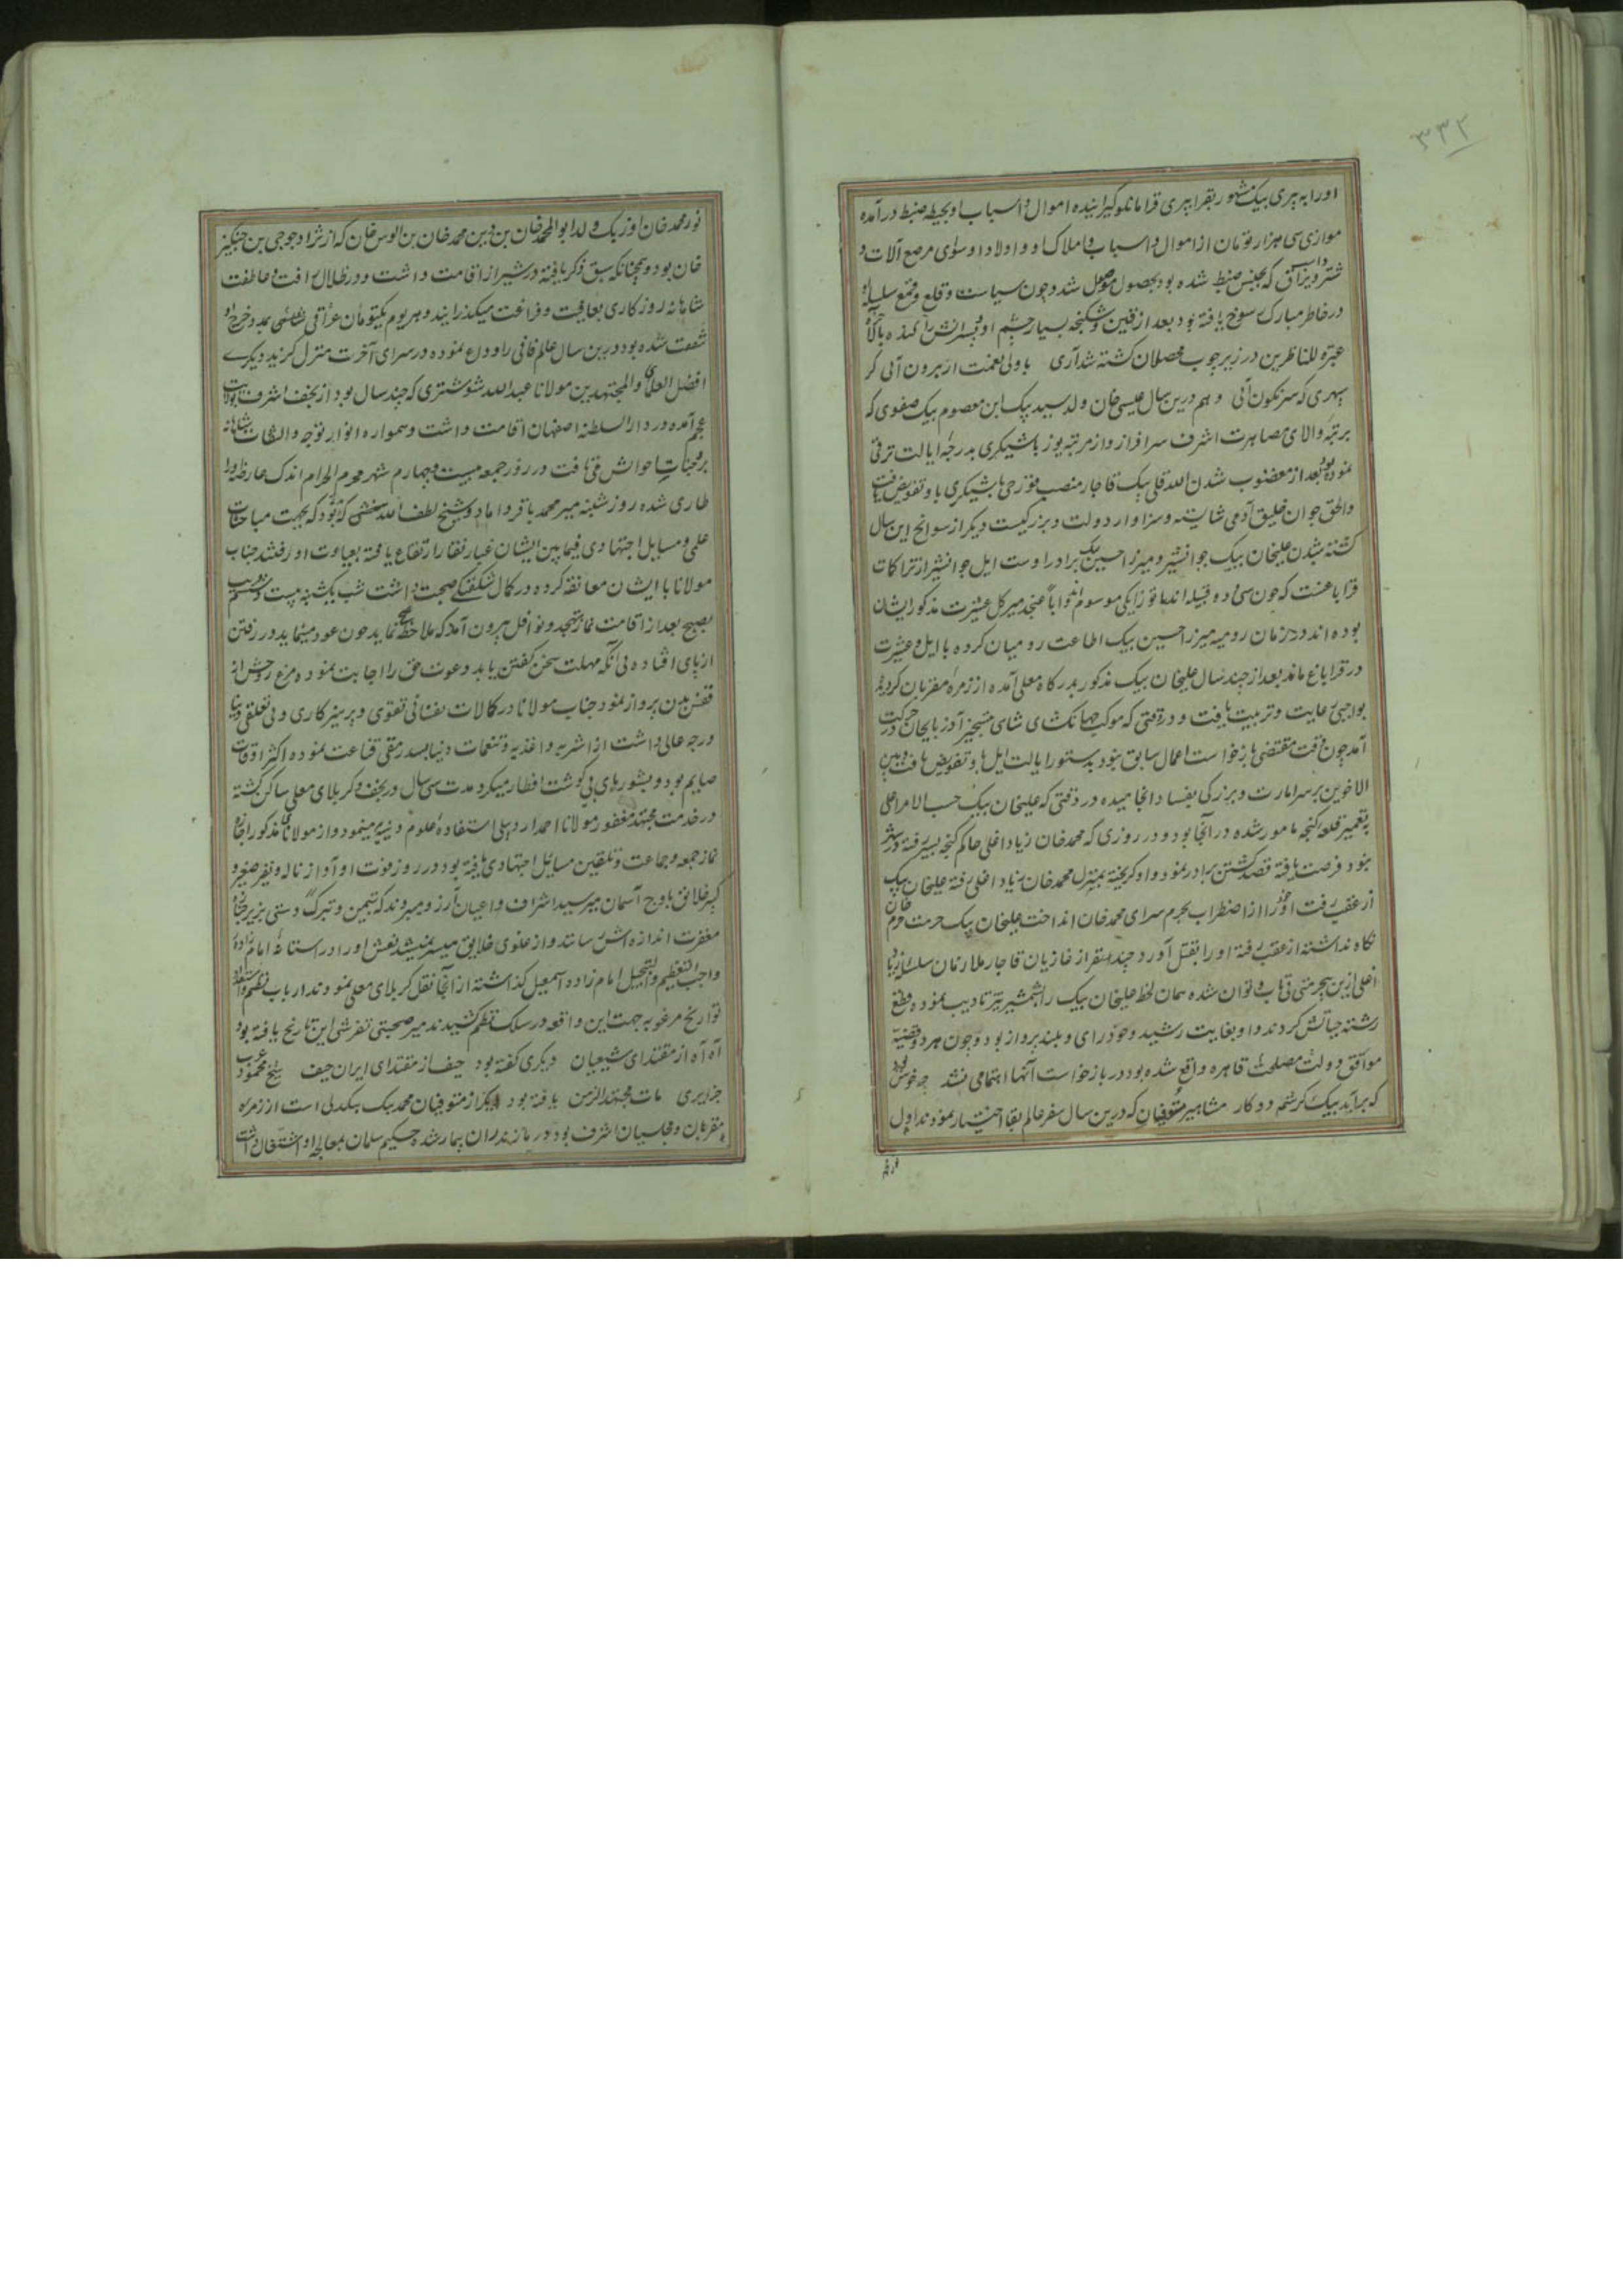 ۳۳۲
اورا به پیری بیک مشهور بقرا پیری قرامانلو گیرانیده اموال و اسباب او بحیطه ضبط درآمده
موازی سی هزار تومان از اموال و اسباب و املاک او و اولاد او سوای مرصع آلات و
شتر و یراق که بجنس ضبط شده بود بحصول موصل شد و چون سیاست و قلع و قمع سلسله او
در خاطر مبارک رسوخ یافته بود بعد از قین و شکنجه بسیار چشم او و پسرانش را کنده
عبرة للناظرین در زیر چوب محصلان کشته شد آری با ولی نعمت ار برون آئی گر
سپهری که سرنگون آئی و هم درین سال عیسی خان ولد سید بیک ابن معصوم بیک صفوی که
برتبه والای مصاهرت اشرف سرافراز و از مرتبه یوزباشیگری بدرجه ایالت ترقی
نموده بود بعد از مغضوب شدن الله قلی بیک قاجار منصب قورچی باشیگری باو تفویض یافت
والحق جوان خلیق آدمی شایسته و سزاوار دولت و بزرگیست دیگر از سوانح این سال
کشته شدن علیخان بیک جوانشیر و میرزا حسین بیک برادر اوست ایل جوانشیر از تراکات
قراباغست که چون سی و دو قبیله اند باتوزایکی موسوم اند و اباً عنجد میر کل عشیرت مذکور ایشان
بوده اند در زمان رومیه میرزا حسین بیک اطاعت رومیان کرده با ایل و عشیرت
در قراباغ ماند بعد از چند سال علیخان بیک مذکور بدرگاه معلی آمده از زمره مقربان گردید
بواجبی رعایت و تربیت یافت و در وقتی که موکب جهانگشای شاهی بتسخیر آذربایجان در حرکت
آمد چون وقت مقتضی بازخواست اعمال سابق نبود بدستور ایالت ایل باو تفویض یافت و بین
الاخوین بر سر امارت و بزرگی بفساد انجامیده در وقتی که علیخان بیک حسب الامر اعلی
بتعمیر قلعه گنجه مامور شده در آنجا بود و در روزی که محمد خان زیاد اغلی حاکم گنجه بسیر رفته در شهر
نبود فرصت یافته قصد کشتن برادر نمود و او گریخته بمنزل محمد خان زیاد اغلی رفته علیخان بیک
از عقب رفت او خود را از اضطراب بحرم سرای محمد خان انداخت علیخان بیک حرمت حرم خان
نگاه نداشته از عقب رفته او را بقتل آورد چند نفر از غازیان قاجار ملازمان سلسله زیاد
اغلی ازین بیحرمتی بی تاب و توان شده همان لحظه علیخان بیک را بشمشیر تیز تادیب نموده قطع
رشته حیاتش کردند و او بغایت رشید و خودرای و بلندپرواز بود و چون هر دو قضیه
موافق دولت و مصلحت قاهره واقع شده بود در بازخواست آنها اهتمامی نشد چه خوش بود
که برآید بیک کرشمه دو کار مشاهیر متوفیان که درین سال سفر عالم بقا اختیار نمودند اول
نور محمد
نور محمد خان اوزبک ولد ابوالمحمد خان بن دین محمد خان بن الوس خان که از نژاد جوجی بن چنگیز
خان بود و همچنانکه سبق ذکر یافته در شیراز اقامت داشت و در ظلال رافت و عاطفت
شاهانه روزگاری بعافیت و فراغت میگذرانید و هر یوم یکتومان عراقی شاهی مدد خرج او
شفقت شده بود درین سال عالم فانی را وداع نموده در سرای آخرت منزل گزید دیگری
افضل العلمای والمجتهدین مولانا عبدالله شوشتری که چند سال بود از نجف اشرف بولایت
عجم آمده در دارالسلطنه اصفهان اقامت داشت و همواره انوار توجه والتفات شاهانه
بر وجنات احوالش می تافت در روز جمعه بیست و چهارم شهر محرم الحرام اندک عارضه اورا
طاری شده روز شنبه میر محمد باقر داماد و شیخ لطف الله میسی که بود که بجهت مباحثات
علمی و مسایل اجتهادی فیمابین ایشان غبار نقار ارتفاع یافته بعیادت او رفتند جناب
مولانا با ایشان معانقه کرده در کمال شکفتگی صحبت داشت شب یکشنبه بیست و ششم قریب
بصبح بعد از اقامت نماز تهجد و نوافل بیرون آمد که ملاحظه صبح نماید چون عود مینماید در رفتن
از پای افتاده بی آنکه مهلت سخن گفتن یابد دعوت حق را اجابت نموده مرغ روحش از
قفس بدن پرواز نمود جناب مولانا در کمالات نفسانی تقوی و پرهیزکاری و بی تعلقی دنیا
درجه عالی داشت از اشربه و اغذیه و تنعمات دنیا بسد رمقی قناعت نموده اکثر اوقات
صایم بود و بشورهای بی گوشت افطار میکرد مدت سی سال در نجف و کربلای معلی ساکن گشته
در خدمت مجتهد مغفور مولانا احمد اردبیلی استفاده علوم دینیه مینمود و از مولانای مذکور اجازه
نماز جمعه و جماعت و تلقین مسایل اجتهادی یافته بود در روز فوت او آواز ناله و نفیر صغیر و
کبیر خلایق باوج آسمان میرسید اشراف و اعیان آرزو میبردند که تیمن و تبرکاً دستی بزیر جنازه
مغفرت اندازه اش رسانند و از غلوی خلایق میسر نمیشد نعش اورا در آستانه امام زاده
واجب التعظیم والتبجیل امام زاده اسمعیل گذاشته از آنجا نقل کربلای معلی نمودند ارباب نظم و استعداد
تواریخ مرغوبه جهت این واقعه در سلک نظم کشیدند میر صحبتی تفرشی این تاریخ یافته بود
آه آه از مقتدای شیعیان دیگری گفته بود حیف از مقتدای ایران حیف شیخ محمود عرب
جزایری مات مجتهد الزمن یافته بود دیگر از متوفیان محمد بیک بیکدلی است از زمره
مقربان و مجلسیان اشرف بود در مازندران بیمار شده حکیم سلمان بمعالجه او اشتغال داشت